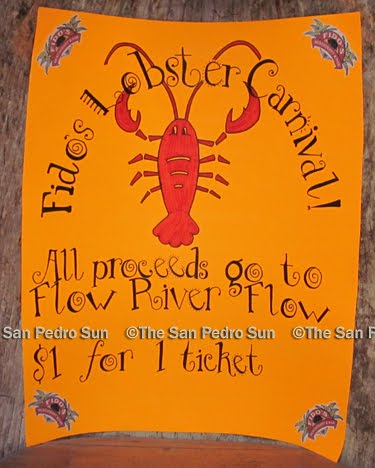 Fido's Lobster Carnival!
All proceeds go to
Flow River Flow
San Pedro Sun ©The San Pedro Sun ©The San P
$1 for 1 ticket
FIDO'S
FIDO'S
FIDO'S
FIDO'S